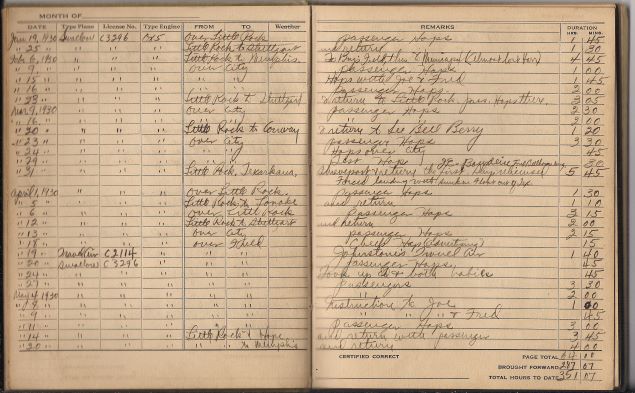 MONTH OF
DATE Type Plane License No. Type Engine FROM TO Weather REMARKS DURATION HRS. MINS.
Jan 19, 1930 Swallow C3296 over Little Rock Passenger Hops 1 45
" 25 " " " " Little Rock to Stuttgart and return 1 30
Feb 6, 1930 " " " Little Rock to Memphis 4 45
" 9 " " " " over City Passenger Hops 1 00
" 15 " " " " " " Hops with Joe & Fred 45
" 16 " " " " " " Passenger Hops 2 00
" 23 " " " " Little Rock to Stuttgart return to Little Rock, pass. Hops there 3 05
Mar 9, 1930 " " " over City passenger Hops 2 30
" 16 " " " " " " 2 00
" 20 " " " " Little Rock to Conway return to See Bell Berry 1 20
" 23 " " " " over City passenger Hops 3 30
" 24 " " " " " " Hops over City 45
" 29 " " " " " " Test Hop 30
" 31 " " " " Little Rock, Texarkana, Shreveport & return the first 5 45
Forced landing with
April 1, 1930 " " " over Little Rock Passenger Hops 1 30
" 5 " " " " Little Rock to Lonoke and return 1 10
" 6 " " " " over Little Rock Passenger Hops 3 15
" 12 " " " " Little Rock to Stuttgart and return 2 00
" 13 " " " " over City passenger Hops 2 15
" 18 " " " " over Field Check Hop 15
" 19 " C2114 " " " Travel Air 1 40
" 20 " Swallow C3296 " " " Passenger Hops 45
" 24 " " " " " " Took up both babies 45
" 27 " " " " " " Passengers 3 30
May 4, 1930 " " " " " 2 00
" 7 " " " " " " Instruction to Joe 1 00
" 9 " " " " " " " " " & Fred 45
" 11 " " " " " " Passenger Hops 3 00
" 14 " " " " Little Rock & Hope and return with passenger 3 45
" 20 " " " " " to Memphis and return 4 00
CERTIFIED CORRECT PAGE TOTAL 64 00
BROUGHT FORWARD 287 07
TOTAL HOURS TO DATE 351 07